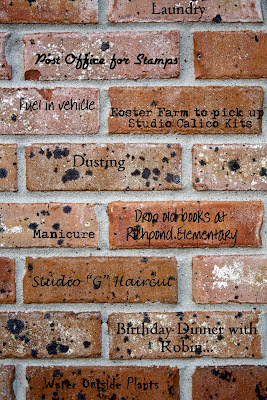 Laundry
Post Office for Stamps
Fuel in vehicle
Roster Farm to pick up
Studio Calico Kits
Dusting
Drop old books at
Richpond Elementary
Manicure
Studeo "G" Haircut
Birthday Dinner with
Robin...
Water Outside Plants